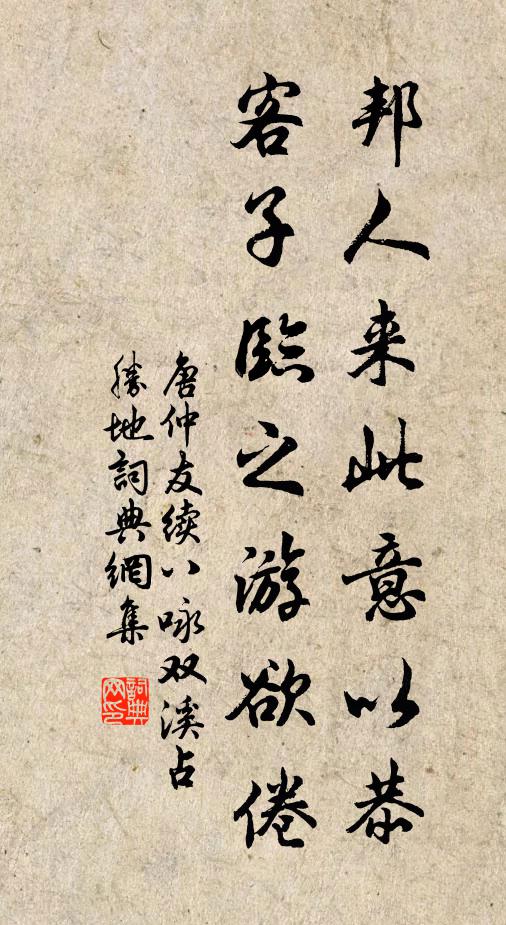 邦人来此意以恭
客子臨之游欲倦
唐仲友续八咏双溪占
勝地詞典網集
詞典
网印